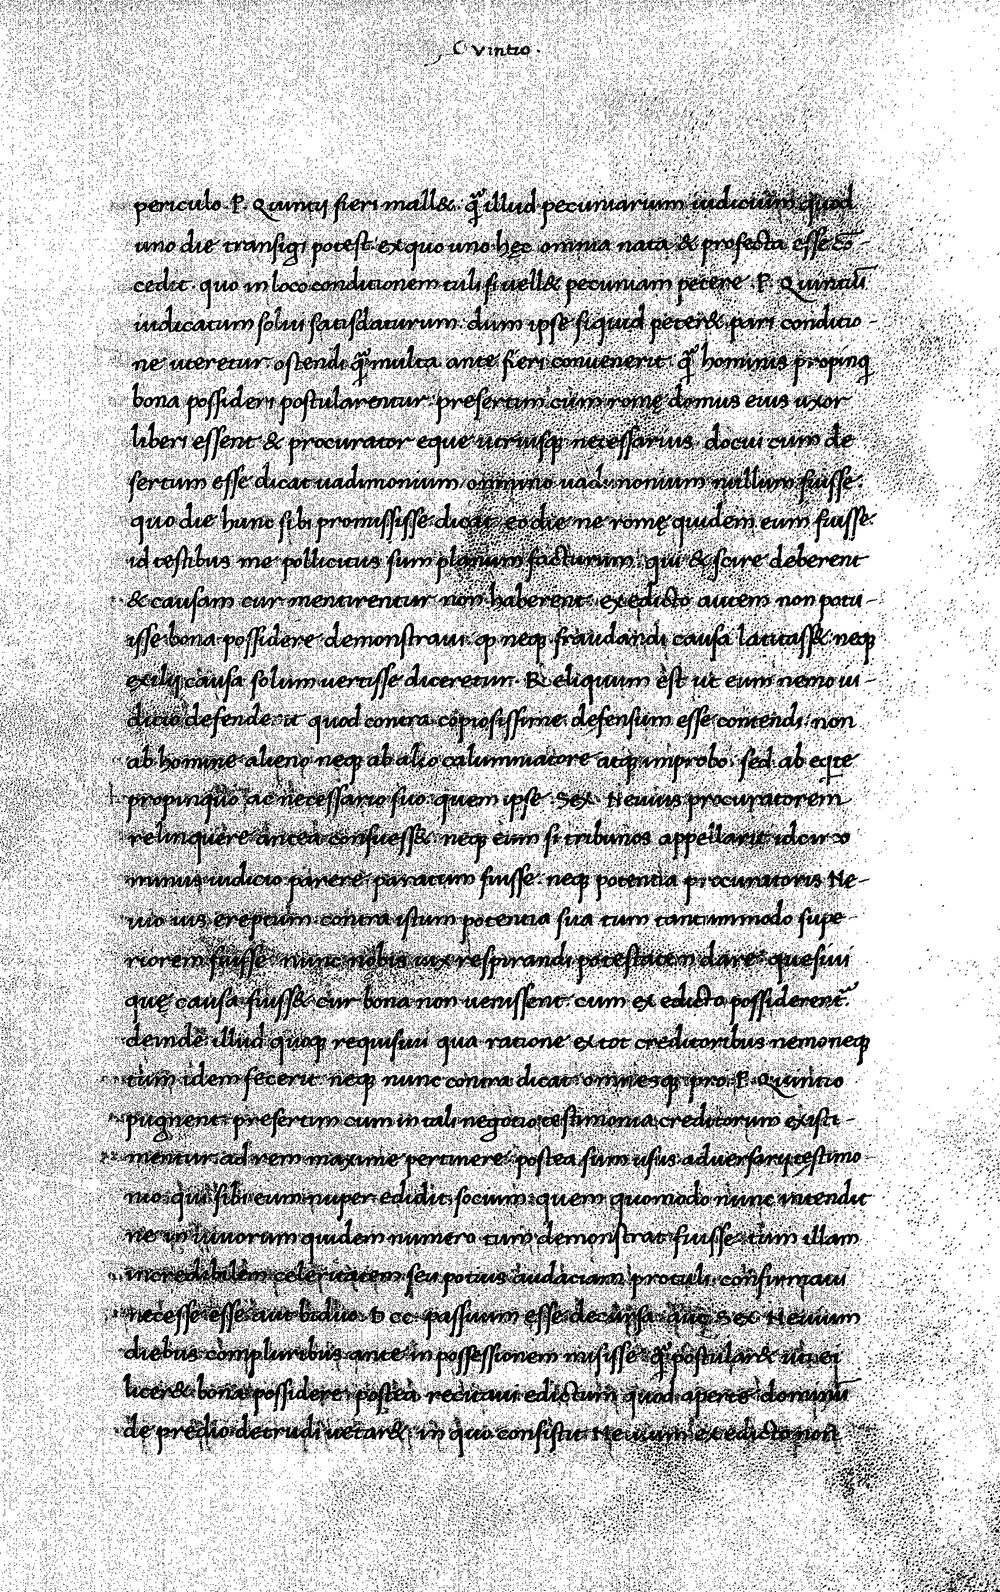 Quintio.
periculo. P. Quintij fieri mall&. q̃ illud pecuniarum iudicium quod
uno die transigi potest. ex quo uno hęc omnia nata & profecta esse cō-
cedit. quo in loco conditionem tuli si uell& pecuniam petere. P. Quintiū
iudicatum solui satisdaturum. dum ipse siquid peter& pari conditio-
ne uteretur. ostendi q̃ multa ante fieri conuenerit. q̃ hominis propinq
bona possideri postularentur. presertim cum romę domus eius uxor
liberi essent & procurator eque utriusq; necessarius. docui cum de
sertum esse dicat uadimonium omnino uadimonium nullum fuisse.
quo die hunc sibi promisisse dicat. eo die ne romę quidem eum fuisse.
id testibus me pollicitus sum planum facturum. qui & scire deberent
& causam cur mentirentur non haberent. ex edicto autem non potu-
isse bona possidere demonstraui. ꝙ neq; fraudandi causa latitass& neq;
exilij causa solum uertisse diceretur. Reliquum est ut eum nemo iu-
dicio defenderit quod contra copiosissime defensum esse contendi. non
ab homine alieno neq; ab alio calumniatore atq; improbo. sed ab eqte
propinquo ac necessario suo. quem ipse. Sex. Neuius procuratorem
relinquere antea consuess&. neq; eum si tribunos appellarit. idcirco
minus iudicio parere paratum fuisse. neq; potentia procuratoris Ne-
uio ius ereptum. contra istum potentia sua tum tantummodo supe-
riorem fuisse nunc nobis uix respirandi potestatem dare. quesiui
quę causa fuiss& cur bona non uenissent cum ex edicto possiderent̃.
deinde illud quoq; requisiui qua ratione ex tot creditoribus nemo neq;
tum idem fecerit neq; nunc contra dicat. omnesq; pro. P. Quintio
pugnent. presertim cum in tali negotio testimonia creditorum existi-
mentur. ad rem maxime pertinere. postea sum usus aduersarij testimo-
nio. qui sibi eum nuper edidit socium. quem quomodo nunc intendit
ne in uiuorum quidem numero tum demonstrat fuisse. tum illam
incredibilem celeritatem seu potius audaciam protuli. confirmaui
necesse esse aut biduo. DCC. passuum esse decursa. aut Sex Neuium
diebus compluribus ante in possessionem misisse. q̃ postular& ut ei
licer& bona possidere. postea recitaui edictum quod aperte dominū
de predio detrudi uetar&. in quo consistit Neuium ex edicto non